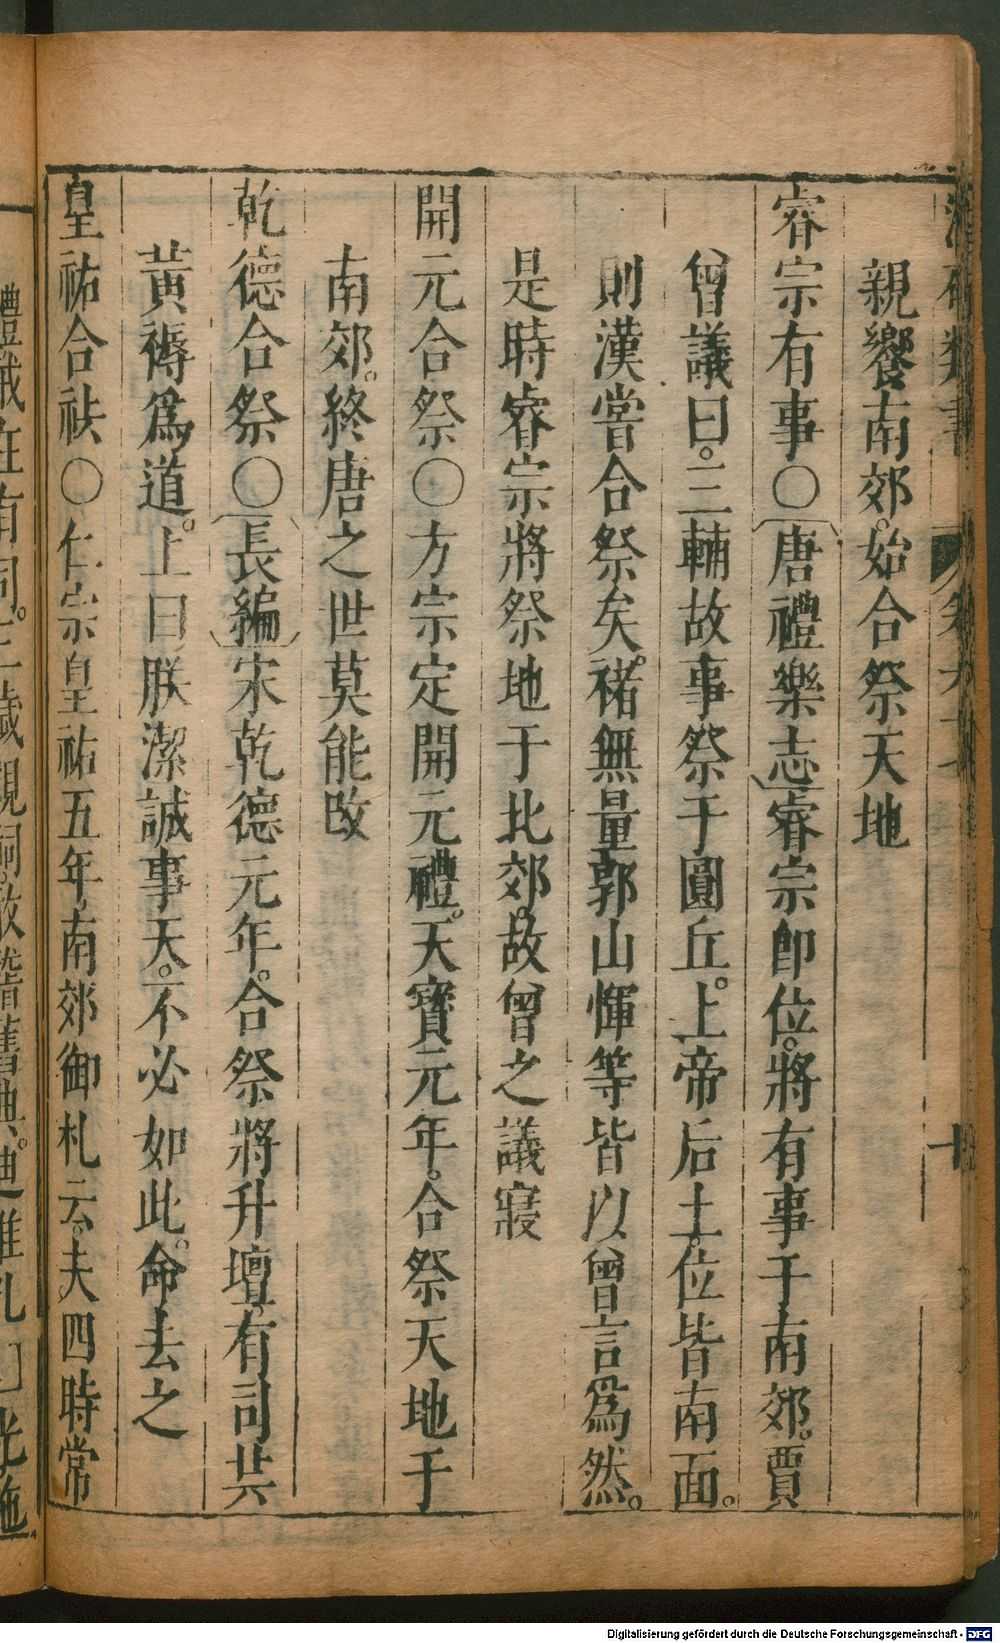 親饗南郊。始合祭天地
睿宗有事〇〔唐禮樂志〕睿宗卽位。將有事于南郊。賈
曾議曰。三輔故事祭于圓丘。上帝后土。位皆南面。
則漢嘗合祭矣。褚無量郭山惲等皆以曾言爲然。
是時睿宗將祭地于北郊。故曾之議寢
開元合祭〇方宗定開元禮。天寶元年。合祭天地于
南郊。終唐之世莫能改
乾德合祭〇〔長編〕宋乾德元年。合祭將升壇。有司共
黃褥爲道。上曰朕潔誠事天。不必如此。命去之
皇祐合祑〇仁宗皇祐五年。南郊御札云。夫四時常
Digitalisierung gefördert durch die Deutsche Forschungsgemeinschaft - DFG